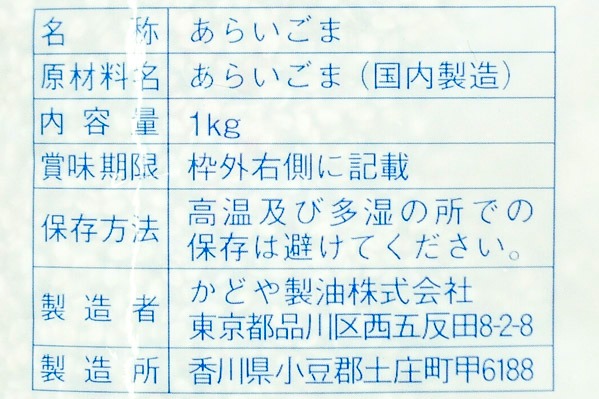 名称 あらいごま
原材料名 あらいごま（国内製造）
内容量 1kg
賞味期限 枠外右側に記載
保存方法 高温及び多湿の所での
保存は避けてください。
製造者 かどや製油株式会社
東京都品川区西五反田8-2-8
製造所 香川県小豆郡土庄町甲6188